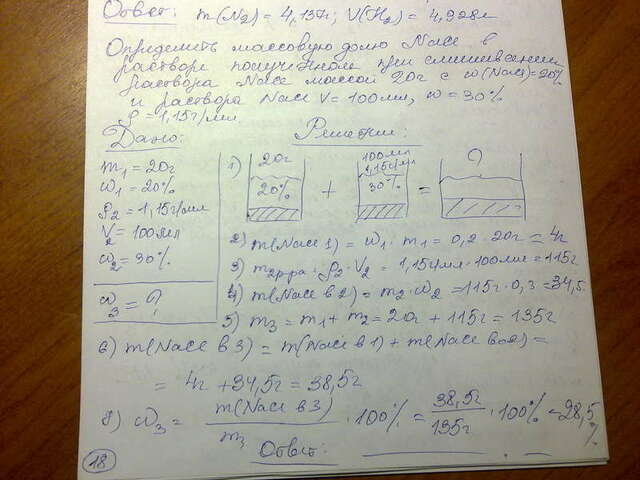 Ответ: m(N₂) = 4,137г; V(H₂) = 4,928л
Определить массовую долю NaCl в
растворе полученном при смешивании
раствора NaCl массой 20г с w(NaCl)=20%
и раствора NaCl V = 100мл, w = 30%
ρ = 1,15г/мл.
Дано:
m₁ = 20г
w₁ = 20%
ρ₂ = 1,15г/мл
V₂ = 100мл
w₂ = 30%
w₃ = ?
Решение:
1) 20г 20% + 100мл 1,15г/мл 30% = ?
2) m(NaCl 1) = w₁ · m₁ = 0,2 · 20г = 4г
3) m₂р-ра = ρ₂ · V₂ = 1,15г/мл · 100мл = 115г
4) m(NaCl в 2) = m₂ · w₂ = 115г · 0,3 = 34,5г
5) m₃ = m₁ + m₂ = 20г + 115г = 135г
6) m(NaCl в 3) = m(NaCl в 1) + m(NaCl во 2) =
= 4г + 34,5г = 38,5г
7) w₃ = m(NaCl в 3) / m₃ · 100% = 38,5г / 135г · 100% = 28,5%
Ответ:
18